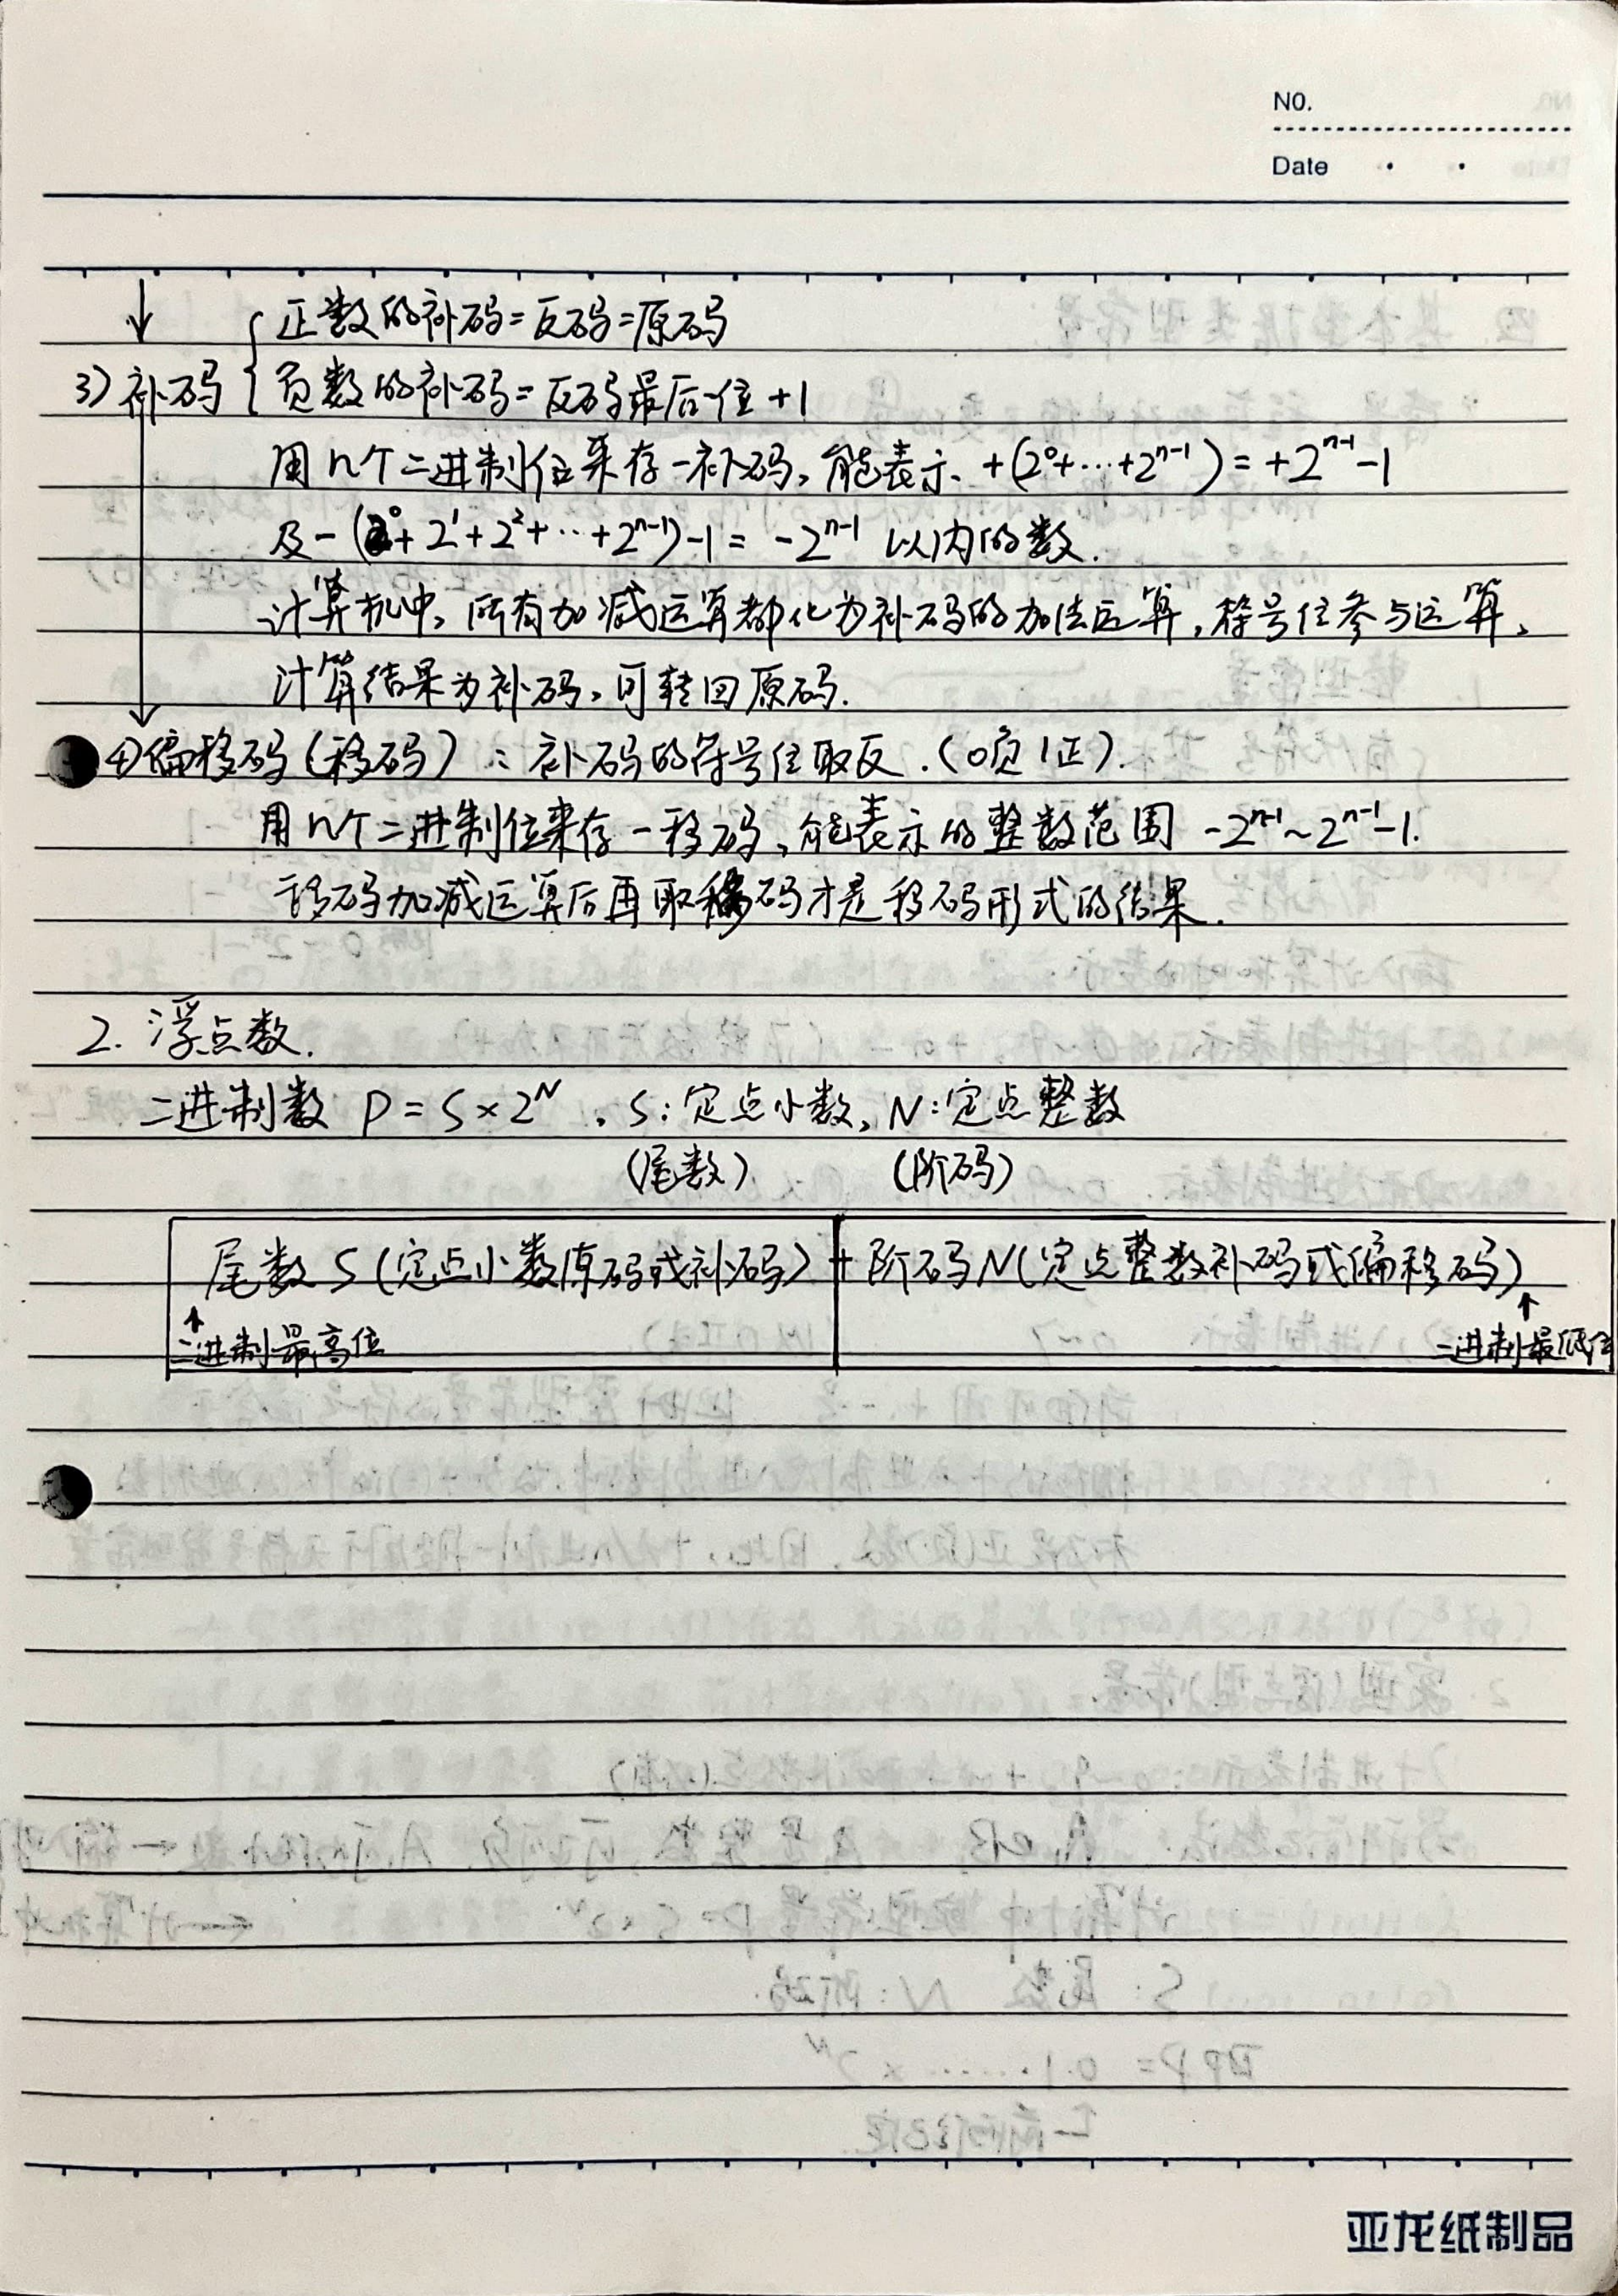 NO.
Date
正数的补码=反码=原码
3)补码 负数的补码=反码最后一位+1
用n个二进制位来存一补码,能表示 +(2⁰+…+2ⁿ⁻¹)=+2ⁿ⁻¹-1
及-(2⁰+2¹+2²+…+2ⁿ⁻¹)-1=-2ⁿ⁻¹ 以内的数.
计算机中,所有加减运算都化为补码的加法运算,符号位参与运算,
计算结果为补码,可转回原码.
4)偏移码(移码):补码的符号位取反.(0负1正).
用n个二进制位来存一移码,能表示的整数范围 -2ⁿ⁻¹~2ⁿ⁻¹-1.
移码加减运算后再取移码才是移码形式的结果.
2. 浮点数.
二进制数 P=S×2ᴺ,S:定点小数,N:定点整数
(尾数) (阶码)
尾数S(定点小数原码或补码)+阶码N(定点整数补码或偏移码)
↑ ↑
二进制最高位 二进制最低位
亚龙纸制品